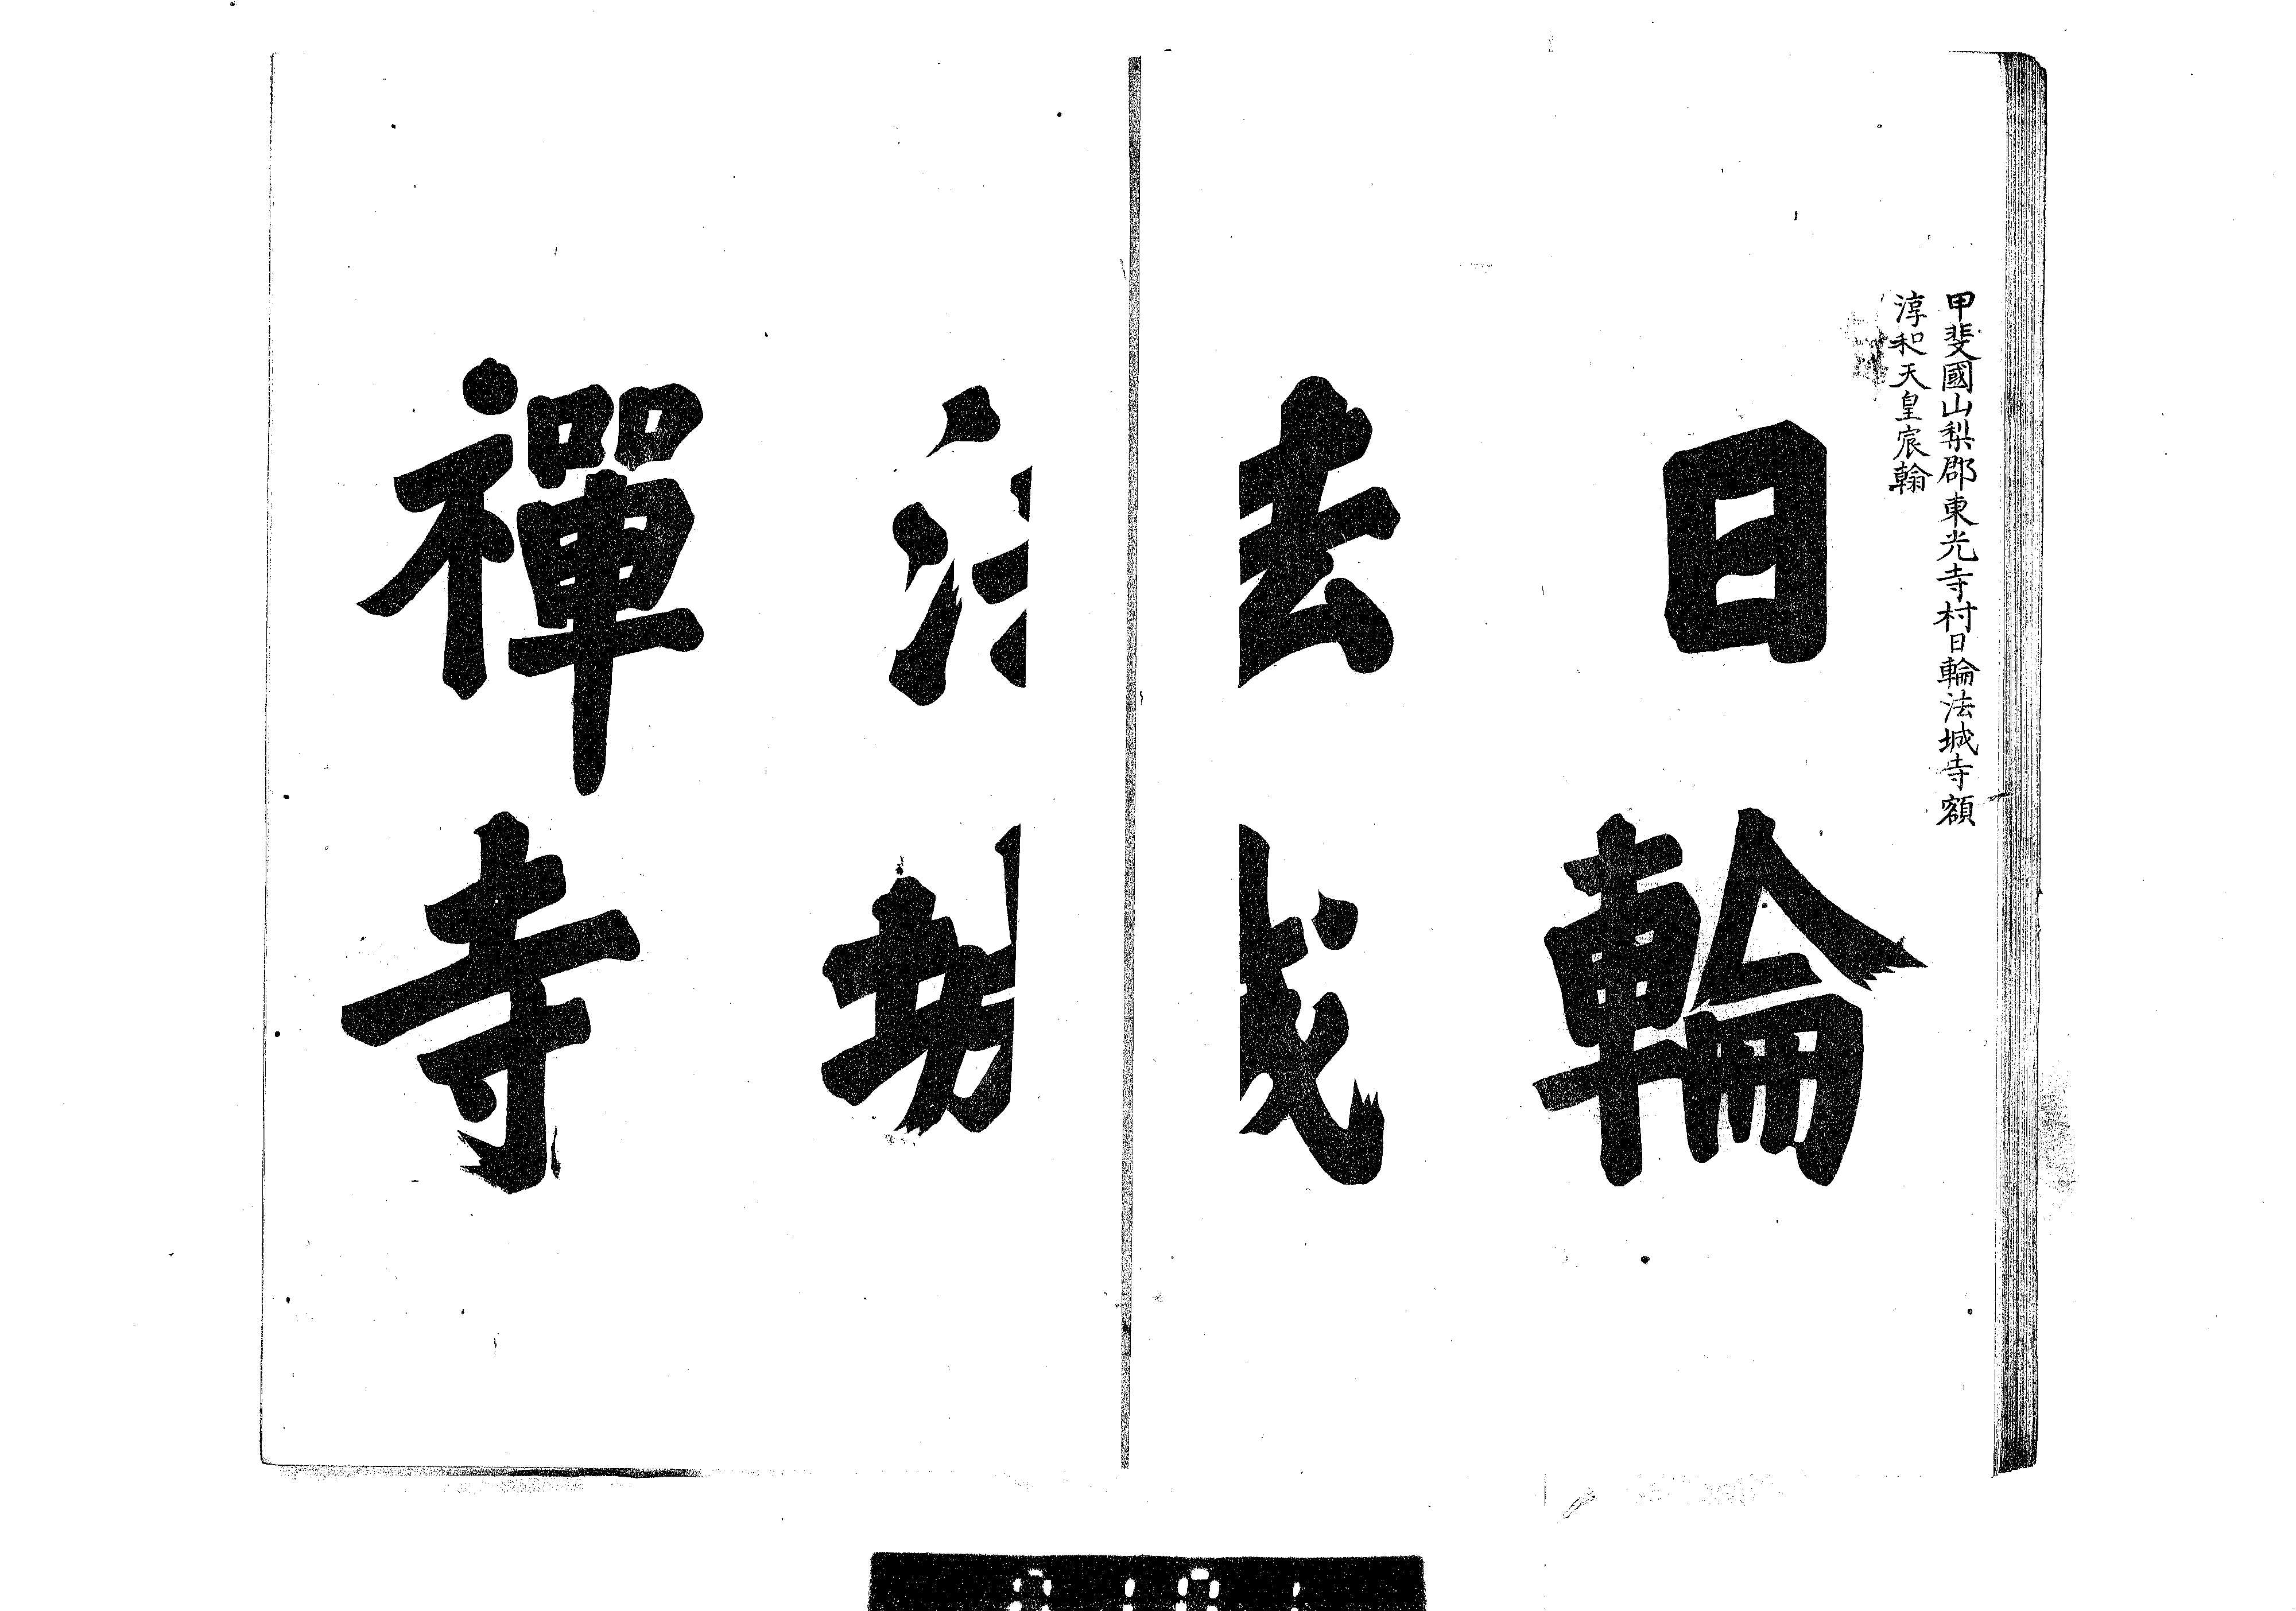 甲斐國山梨郡東光寺村日輪法城寺額
淳和天皇宸翰
日輪
法城
禪寺